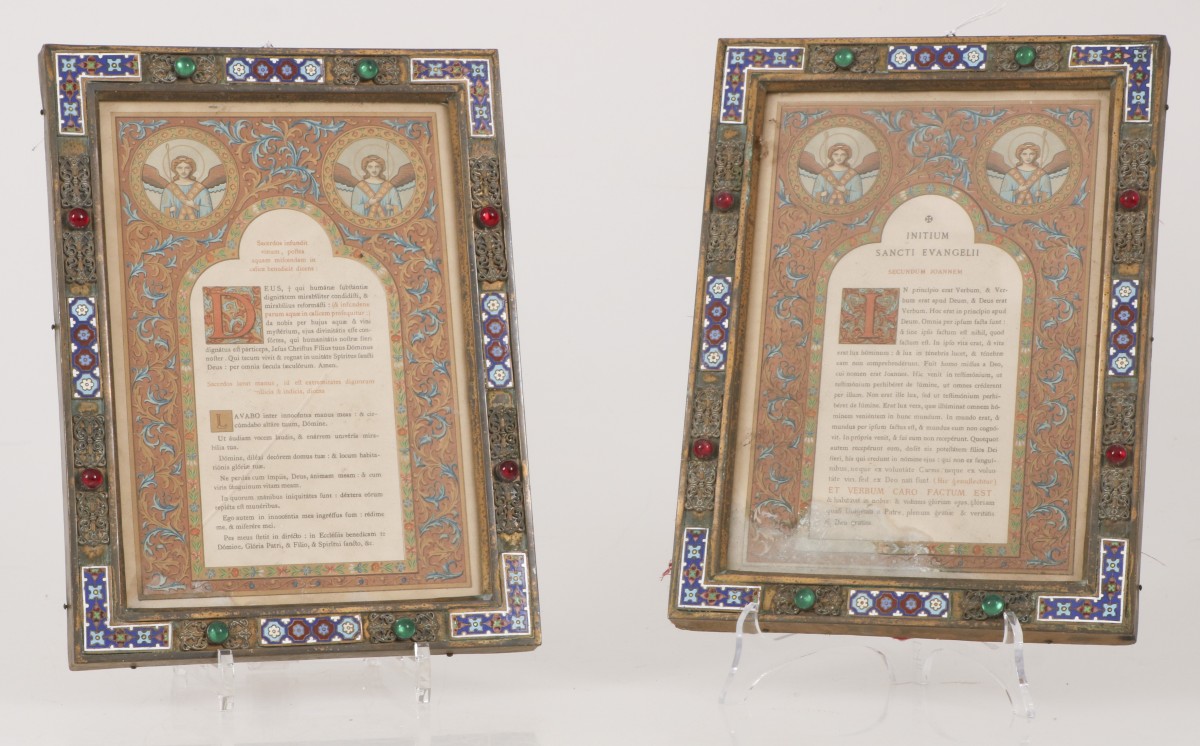 Sacerdos infundit
vinum, postea
aquam miscendam in
calice benedicit dicens:
DEUS, ☩ qui humánæ ſubſtantiæ
dignitátem mirabíliter condidíſti, &
mirabílius reformáſti:
da nobis per hujus aquæ & vini
myſtérium, ejus divinitátis eſſe con-
ſórtes, qui humanitátis noſtræ fieri
dignátus eſt párticeps, Jeſus Chriſtus Fílius tuus Dóminus
noſter: Qui tecum vivit & regnat in unitáte Spíritus ſancti
Deus: per omnia ſæcula ſæculórum. Amen.
LAVABO inter innocéntes manus meas: & cir-
cúmdabo altáre tuum, Dómine.
Ut áudiam vocem laudis, & enárrem univérſa mira-
bília tua.
Dómine, diléxi decórem domus tuæ: & locum habita-
tiónis glóriæ tuæ.
Ne perdas cum ímpiis, Deus, ánimam meam: & cum
viris ſánguinum vitam meam.
In quorum mánibus iniquitátes ſunt: déxtera eórum
repléta eſt munéribus.
Ego autem in innocéntia mea ingréſſus ſum: rédime
me, & miſerére mei.
Pes meus ſtetit in dirécto: in Eccléſiis benedícam te
Dómine. Glória Patri, & Fílio, & Spirítui ſancto, &c.
✠
INITIUM
SANCTI EVANGELII
SECUNDUM IOANNEM
IN principio erat Verbum, & Ver-
bum erat apud Deum, & Deus erat
Verbum. Hoc erat in principio apud
Deum. Omnia per ipſum facta ſunt:
& ſine ipſo factum eſt nihil, quod
factum eſt. In ipſo vita erat, & vita
erat lux hóminum: & lux in ténebris lucet, & ténebræ
eam non comprehendérunt. Fuit homo miſſus a Deo,
cui nomen erat Joannes. Hic venit in teſtimónium, ut
teſtimónium perhibéret de lúmine, ut omnes créderent
per illum. Non erat ille lux, ſed ut teſtimónium perhi-
béret de lúmine. Erat lux vera, quæ illúminat omnem hó-
minem veniéntem in hunc mundum. In mundo erat, &
mundus per ipſum factus eſt, & mundus eum non cognó-
vit. In própria venit, & ſui eum non recepérunt. Quotquot
autem recepérunt eum, dedit eis poteſtátem fílios Dei
fíeri, his qui credunt in nómine ejus: qui non ex ſanguí-
nibus, neque ex voluntáte Carnis, neque ex volun-
táte viri ſed ex Deo nati ſunt
ET VERBUM CARO FACTUM EST
& habitávit in nobis: & vídimus glóriam ejus, glóriam
quaſi Unigéniti a Patre, plenum grátiæ & veritátis
Deo grátias.